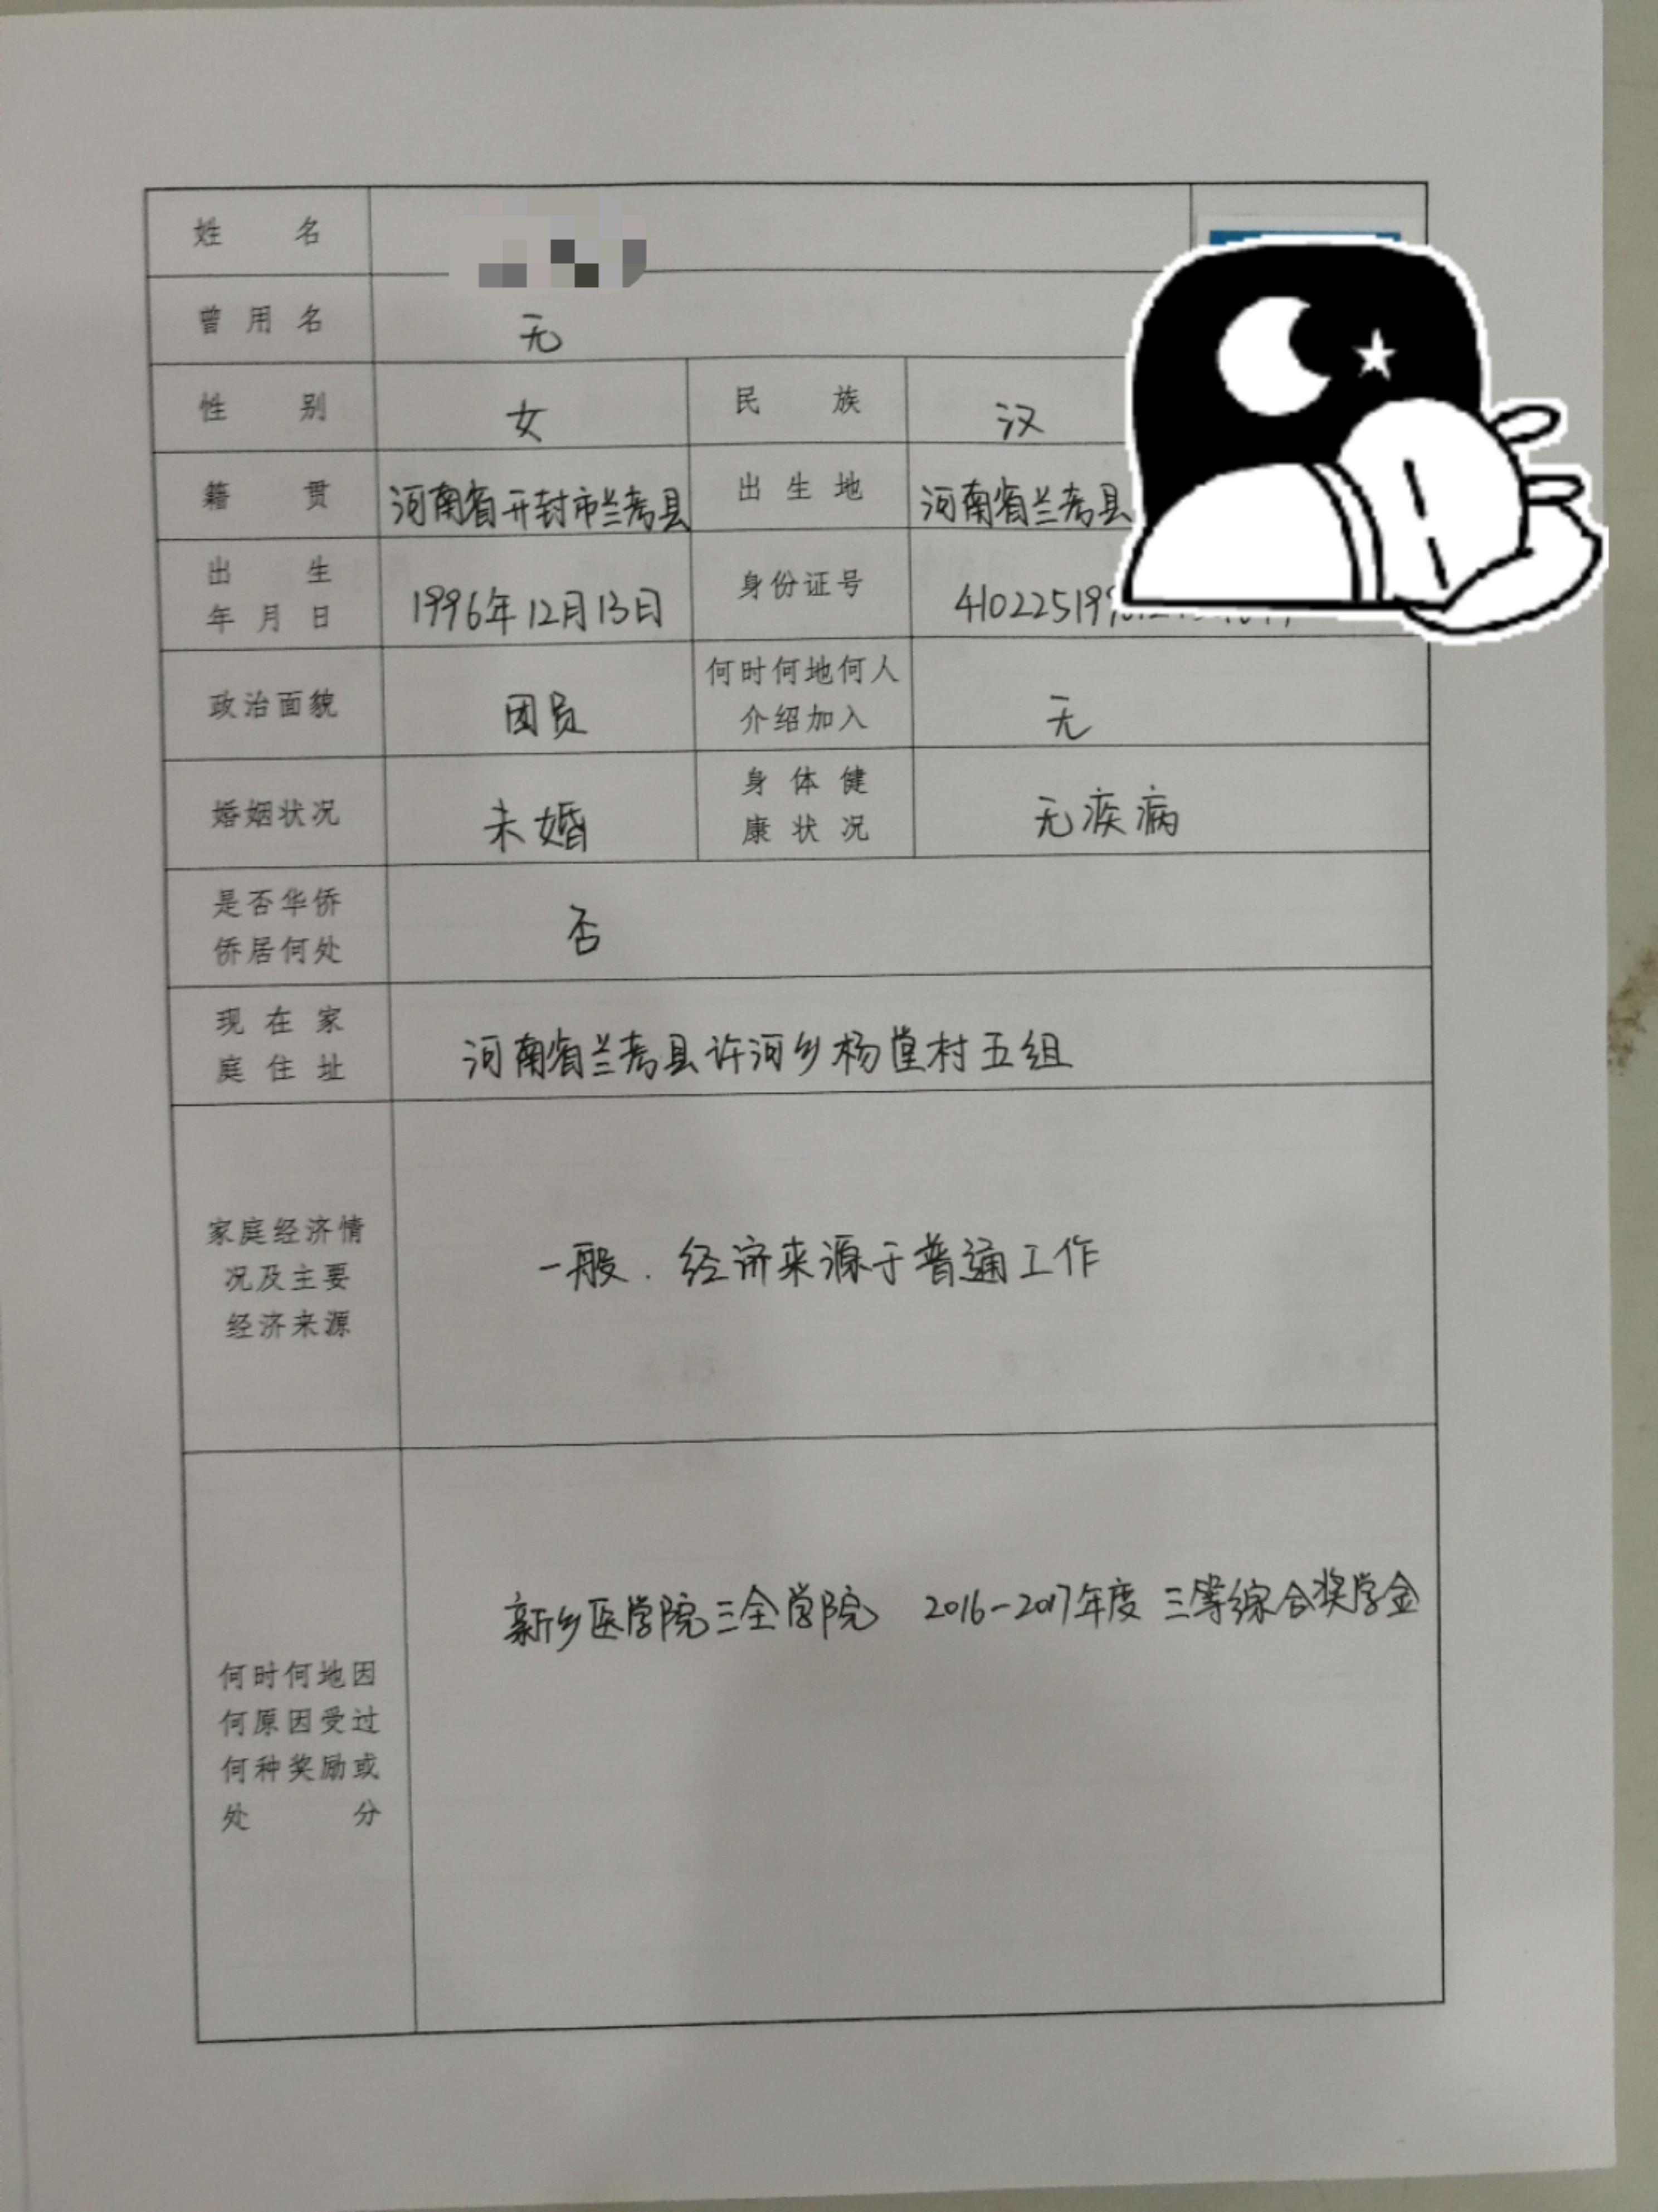 姓名
曾用名 无
性别 女 民族 汉
籍贯 河南省开封市兰考县 出生地 河南省兰考县
出生
年月日 1996年12月13日 身份证号 41022519
政治面貌 团员 何时何地何人
介绍加入 无
婚姻状况 未婚 身体健
康状况 无疾病
是否华侨
侨居何处 否
现在家
庭住址 河南省兰考县许河乡杨堂村五组
家庭经济情
况及主要
经济来源
一般.经济来源于普通工作
新乡医学院三全学院 2016-2017年度 三等综合奖学金
何时何地因
何原因受过
何种奖励或
处分